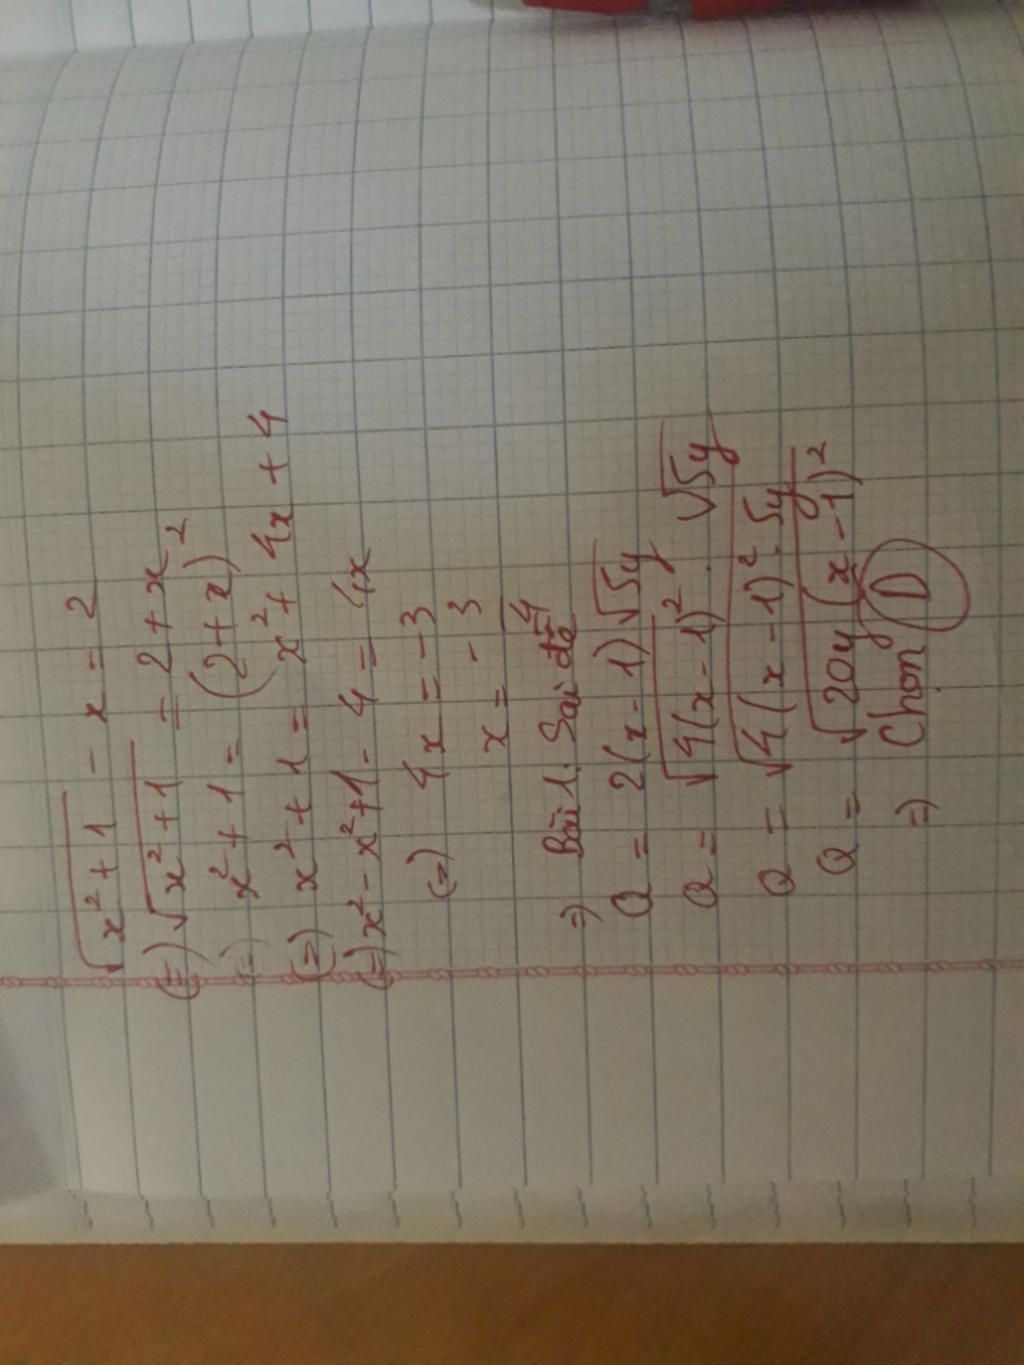 √(x² + 1) - x = 2
(=) √(x² + 1) = 2 + x
(=) x² + 1 = (2 + x)²
(=) x² + 1 = x² + 4x + 4
(=) x² - x² + 1 - 4 = 4x
(=) 4x = -3
x = -3/4
=) Bài 1: Sai đề
Q = 2(x - 1)√5y
Q = √4(x - 1)² . √5y
Q = √4(x - 1)² . 5y
Q = √20y(x - 1)²
=) Chọn D